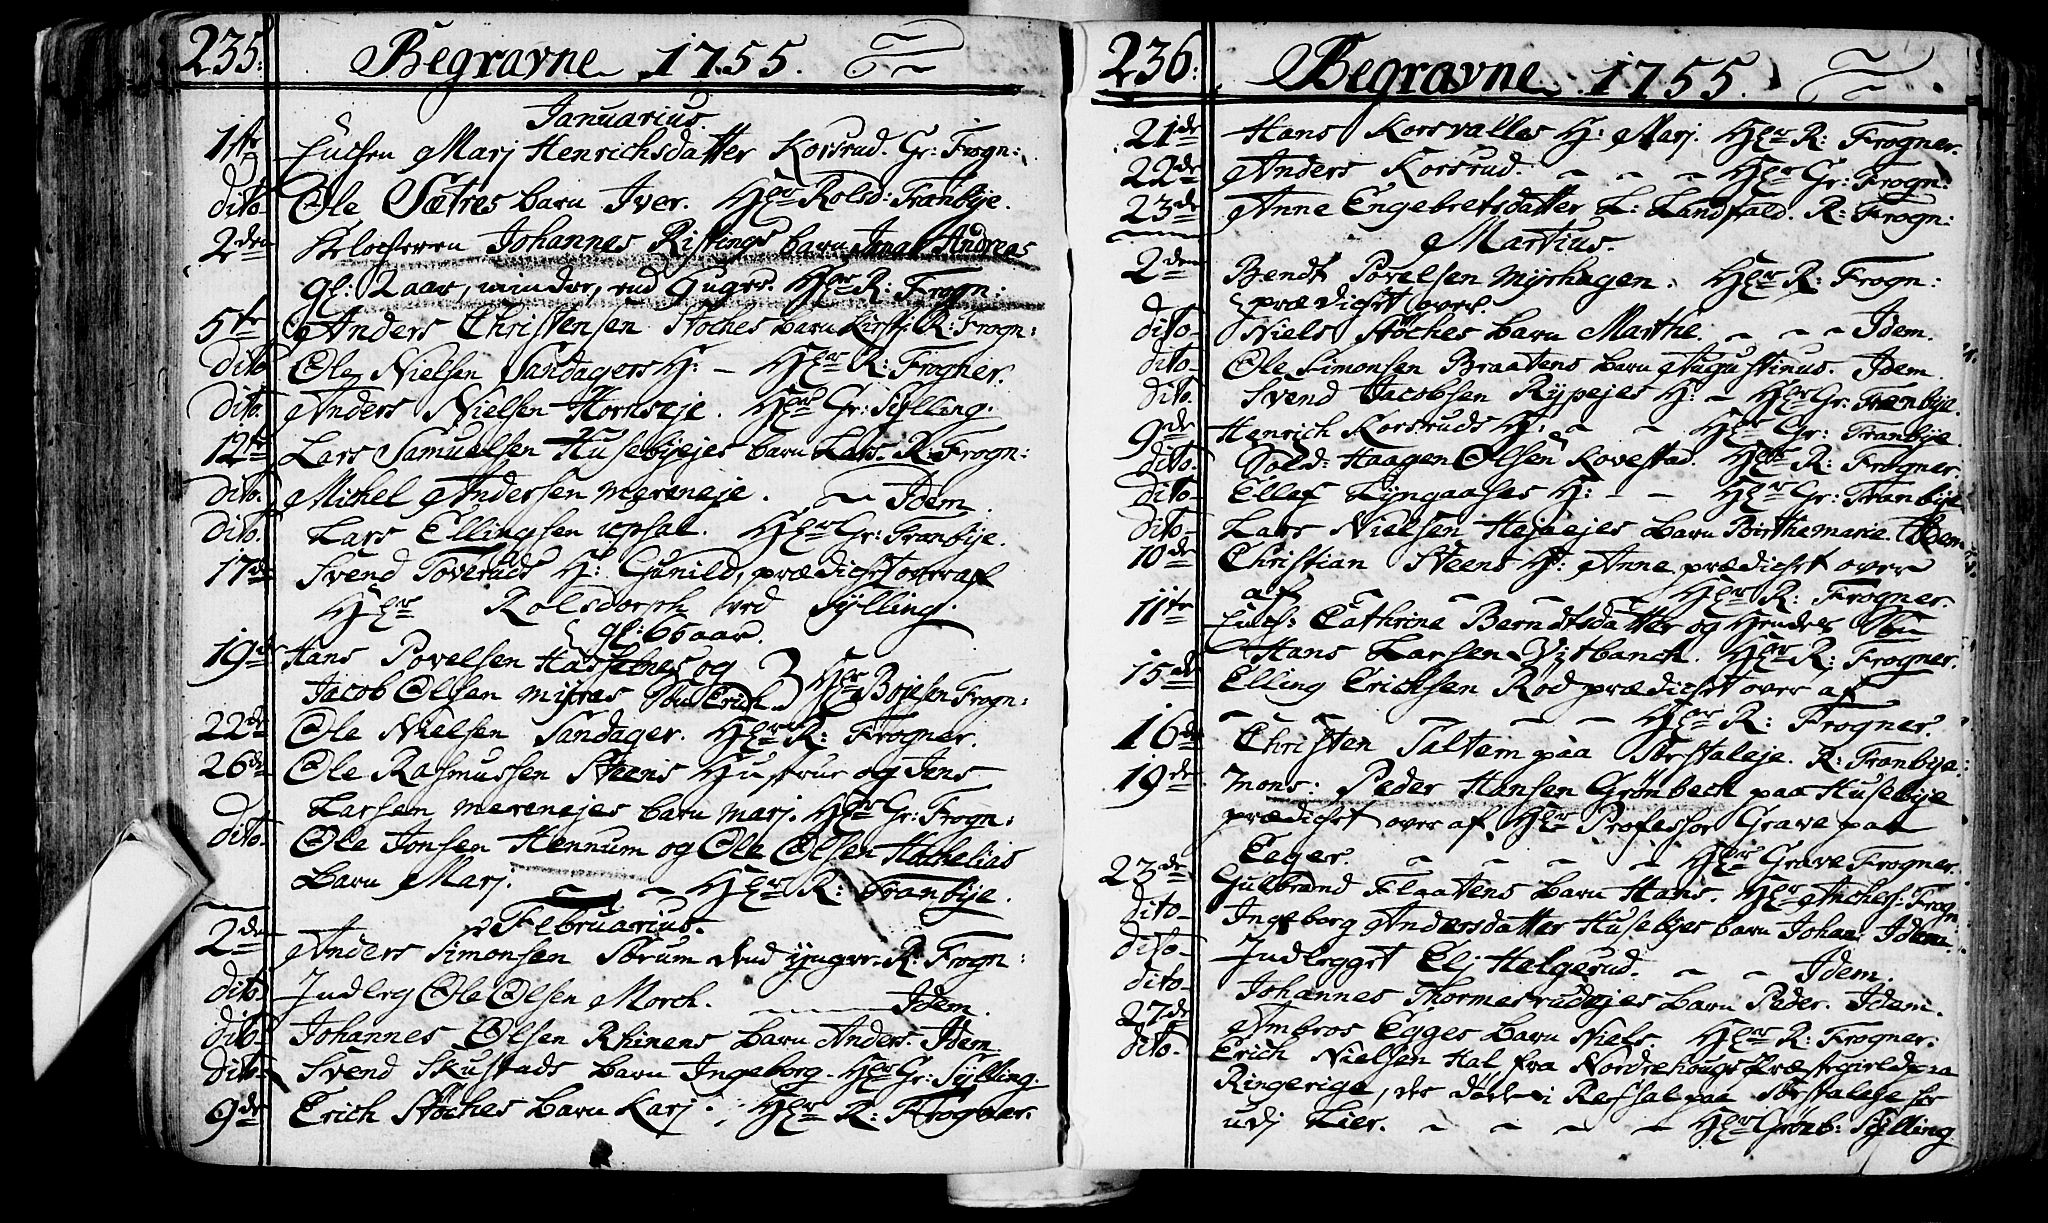 235.
Begravne 1755.
Januarius.
1te Enchen Marj Henrichsdatter Korsrud. Gr: Frogn:
dito Ole Sætres barn Iver. Hr Rolsd: Franbije.
2den Klocheren Johannes Rislings barn Andreas
gl: 2 aar, mindre, end 9 uger. Hr R: Frogn:
5te Anders Christensen Stoches barn Kirsti. R: Frogn:
dito Ole Nielsen Sandagers H: – Hr R: Frogner.
dito. Anders Nielsen Hornseje. Hr Gr: Sylling.
12te Lars Samuelsen Husebyejes barn Lars. R: Frogn:
dito. Michel Andersen Mereneje. – Idem.
dito. Lars Ellingsen upsal. Hr Gr: Franbije.
17de Svend Toveruds H: Gunild, prædichet over af
Hr Rolsdorph ved Sylling.
gl: 65 aar.
19de Hans Povelsen Hasselnes og
Jacob Olsen Myres Søn Erich Hr Bojesen Frogn:
22de Ole Nielsen Sandager. Hr R: Frogner.
26de Ole Rasmussen Steens Hustrue og Jens
Larsen Merenejes barn Marj. Hr Gr: Frogn:
dito. Ole Jonsen Hennum og Ole Olsen Hothelias
Barn Marj. – – Hr R: Franbije.
Februarius.
2de Anders Simonsen Sørum dend yngre. R: Frogn:
dito. Indleg Ole Olsen Morch. – Idem.
dito. Johannes Olsen Rhinens barn Anders. Idem
dito. Svend Skustads barn Ingeborg. Hr Gr: Sylling.
9de Erich Stöches barn Karj. Hr R: Frogner.
236.
Begravne 1755.
21de Hans Korsvalles H: Marj. Hr R: Frogner.
22de Anders Korsrud. – – – Hr Gr: Frogn:
23de Anne Engebretsdatter L: Landfald. R: Frogn:
Martius.
2den Bendt Povelsen Myrhagen. Hr R: Frogn:
prædichet over.
dito Niels Stöches barn Marthe. – – – Idem.
dito Ole Simonsen Braatens barn Augustinus. Idem.
dito. Svend Jacobsen Rypejes H: – Hr Gr: Franbije.
9de Henrich Korsruds H: – – Hr Gr: Franbije
dito. Sold: Haagen Olsen Kovestad. Hr R: Frogner.
dito Ellef Lyngaases H: – – Hr Gr: Franbije
dito Lars Nielsen Hejaejes barn Birthemarie. Idem
10de Christian Steens H: Anne prædichet over
af – – – – Hr R: Frogner.
11te Ench: Cathrine Berndtsdatter og hendes Søn
Hans Larsen Vytbanch. Hr R: Frogner.
15de Elling Erichsen Rod prædichet over af
– – – – – Hr R: Frogner.
16de Christen Saltem paa Sørstaleje. R: Franbije.
19de Mons: Peder Hansen Grønbech paa Husebye
prædichet over af Hr Professor Grave paa
Eger. – – – – Hr Grave Frogner.
23de Gulbrand Flaatens barn Hans. Hr Anchers: Frogn:
dito Ingeborg Andersdatter Husebyes barn Johan. Idem
dito. Indlegget Elj Helgerud. – – Idem.
dito Johannes Thormesrudejes barn Peder. Idem.
27de Ambros Egges barn Niels. Hr R: Frogner.
dito. Erich Nielsen Hal fra Nordrehougs Præstegield paa
Ringerige, der døde i paa Sørstaleje her
udj Lier. – – – – Hr Grönb: Sylling